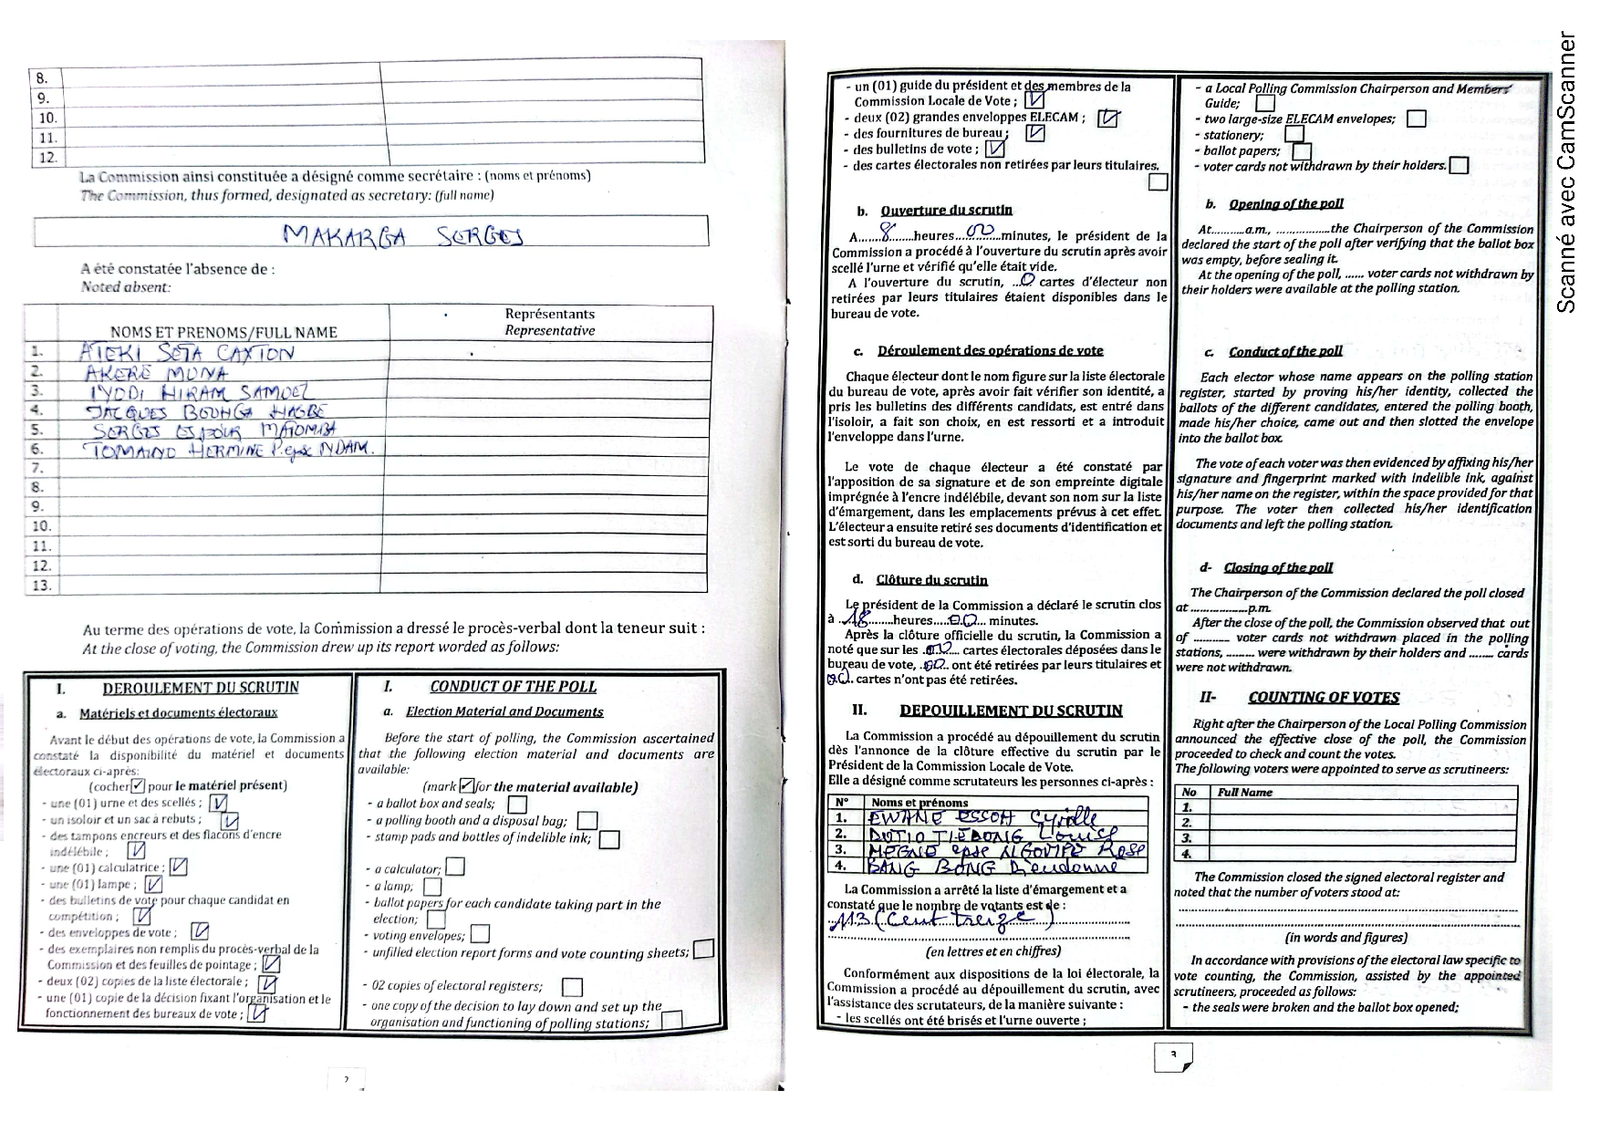 8.
9.
10.
11.
12.
La Commission ainsi constituée a désigné comme secrétaire : (noms et prénoms)
The Commission, thus formed, designated as secretary: (full name)
MAKARGA SERGES
A été constatée l'absence de :
Noted absent:
NOMS ET PRENOMS/FULL NAME
Représentants
Representative
1. ATEKI SETA CAXTON
2. AKERE MUNA
3. IYODI HIRAM SAMUEL
4. JACQUES BOUHGA HAGBE
5. SERGES ESPOIR MATOMBA
6. TOMAINO HERMINE P. epse NDAM.
7.
8.
9.
10.
11.
12.
13.
Au terme des opérations de vote, la Commission a dressé le procès-verbal dont la teneur suit :
At the close of voting, the Commission drew up its report worded as follows:
I. DEROULEMENT DU SCRUTIN
a. Matériels et documents électoraux
Avant le début des opérations de vote, la Commission a
constaté la disponibilité du matériel et documents
électoraux ci-après:
(cocher ☑ pour le matériel présent)
- une (01) urne et des scellés ; ☑
- un isoloir et un sac à rebuts ; ☑
- des tampons encreurs et des flacons d'encre
indélébile ; ☑
- une (01) calculatrice ; ☑
- une (01) lampe ; ☑
- des bulletins de vote pour chaque candidat en
compétition ; ☑
- des enveloppes de vote ; ☑
- des exemplaires non remplis du procès-verbal de la
Commission et des feuilles de pointage ; ☑
- deux (02) copies de la liste électorale ; ☑
- une (01) copie de la décision fixant l'organisation et le
fonctionnement des bureaux de vote ; ☑
I. CONDUCT OF THE POLL
a. Election Material and Documents
Before the start of polling, the Commission ascertained
that the following election material and documents are
available:
(mark ☑ for the material available)
- a ballot box and seals; ☐
- a polling booth and a disposal bag; ☐
- stamp pads and bottles of indelible ink; ☐
- a calculator; ☐
- a lamp; ☐
- ballot papers for each candidate taking part in the
election; ☐
- voting envelopes; ☐
- unfilled election report forms and vote counting sheets; ☐
- 02 copies of electoral registers; ☐
- one copy of the decision to lay down and set up the
organisation and functioning of polling stations; ☐
2
- un (01) guide du président et des membres de la
Commission Locale de Vote ; ☑
- deux (02) grandes enveloppes ELECAM ; ☑
- des fournitures de bureau ; ☑
- des bulletins de vote ; ☑
- des cartes électorales non retirées par leurs titulaires.
☐
b. Ouverture du scrutin
A.....8......heures...00...minutes, le président de la
Commission a procédé à l'ouverture du scrutin après avoir
scellé l'urne et vérifié qu'elle était vide.
A l'ouverture du scrutin, ...0 cartes d'électeur non
retirées par leurs titulaires étaient disponibles dans le
bureau de vote.
c. Déroulement des opérations de vote
Chaque électeur dont le nom figure sur la liste électorale
du bureau de vote, après avoir fait vérifier son identité, a
pris les bulletins des différents candidats, est entré dans
l'isoloir, a fait son choix, en est ressorti et a introduit
l'enveloppe dans l'urne.
Le vote de chaque électeur a été constaté par
l'apposition de sa signature et de son empreinte digitale
imprégnée à l'encre indélébile, devant son nom sur la liste
d'émargement, dans les emplacements prévus à cet effet.
L'électeur a ensuite retiré ses documents d'identification et
est sorti du bureau de vote.
d. Clôture du scrutin
Le président de la Commission a déclaré le scrutin clos
à ..18......heures....00... minutes.
Après la clôture officielle du scrutin, la Commission a
noté que sur les ....... cartes électorales déposées dans le
bureau de vote, .00.. ont été retirées par leurs titulaires et
00.. cartes n'ont pas été retirées.
II. DEPOUILLEMENT DU SCRUTIN
La Commission a procédé au dépouillement du scrutin
dès l'annonce de la clôture effective du scrutin par le
Président de la Commission Locale de Vote.
Elle a désigné comme scrutateurs les personnes ci-après :
N° Noms et prénoms
1. EWANE ESSOH Cyrille
2. DUTIO TIEDONG Louise
3. MEGNE epse NGOUIPE Rose
4. BANG BONG Dieudonné
La Commission a arrêté la liste d'émargement et a
constaté que le nombre de votants est de :
113 (Cent treize)
(en lettres et en chiffres)
Conformément aux dispositions de la loi électorale, la
Commission a procédé au dépouillement du scrutin, avec
l'assistance des scrutateurs, de la manière suivante :
- les scellés ont été brisés et l'urne ouverte ;
- a Local Polling Commission Chairperson and Members'
Guide; ☐
- two large-size ELECAM envelopes; ☐
- stationery; ☐
- ballot papers; ☐
- voter cards not withdrawn by their holders. ☐
b. Opening of the poll
At..........a.m., ................the Chairperson of the Commission
declared the start of the poll after verifying that the ballot box
was empty, before sealing it.
At the opening of the poll, ...... voter cards not withdrawn by
their holders were available at the polling station.
c. Conduct of the poll
Each elector whose name appears on the polling station
register, started by proving his/her identity, collected the
ballots of the different candidates, entered the polling booth,
made his/her choice, came out and then slotted the envelope
into the ballot box.
The vote of each voter was then evidenced by affixing his/her
signature and fingerprint marked with indelible ink, against
his/her name on the register, within the space provided for that
purpose. The voter then collected his/her identification
documents and left the polling station.
d- Closing of the poll
The Chairperson of the Commission declared the poll closed
at ..................p.m.
After the close of the poll, the Commission observed that out
of ........... voter cards not withdrawn placed in the polling
stations, ........ were withdrawn by their holders and ....... cards
were not withdrawn.
II- COUNTING OF VOTES
Right after the Chairperson of the Local Polling Commission
announced the effective close of the poll, the Commission
proceeded to check and count the votes.
The following voters were appointed to serve as scrutineers:
No Full Name
1.
2.
3.
4.
The Commission closed the signed electoral register and
noted that the number of voters stood at:
(in words and figures)
In accordance with provisions of the electoral law specific to
vote counting, the Commission, assisted by the appointed
scrutineers, proceeded as follows:
- the seals were broken and the ballot box opened;
3
Scanné avec CamScanner